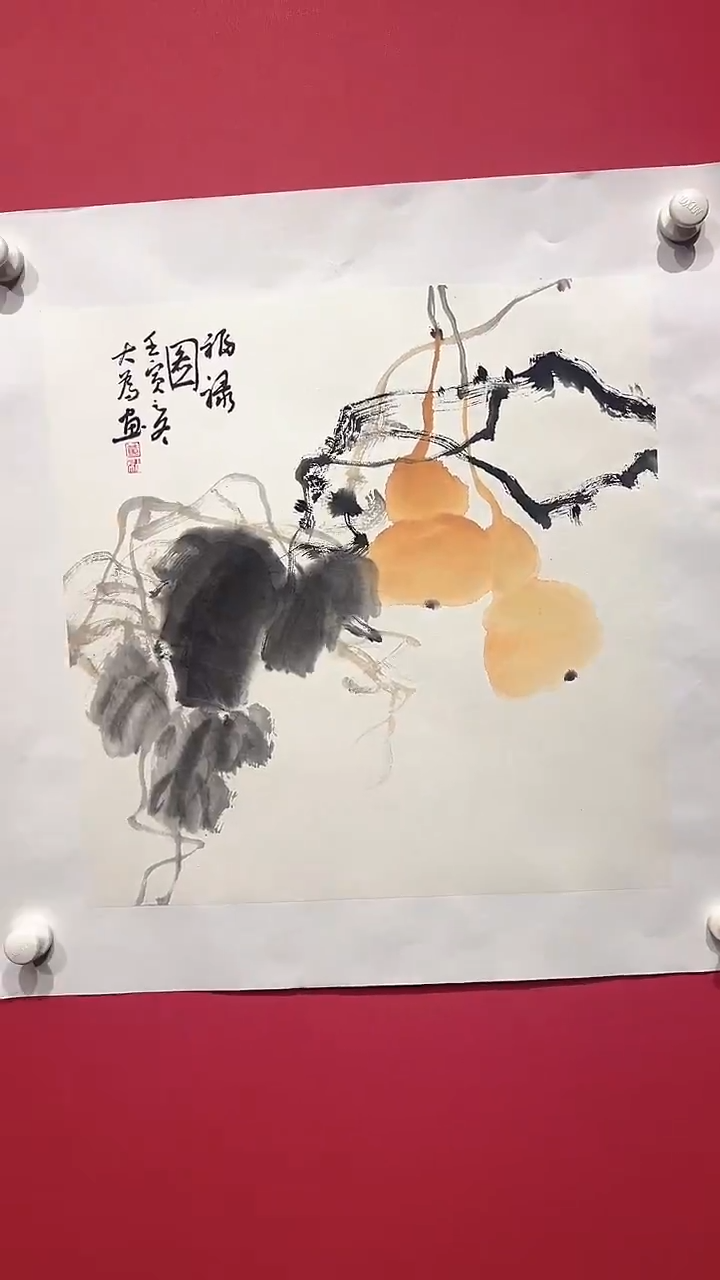 福禄
图
壬寅之冬
大为画